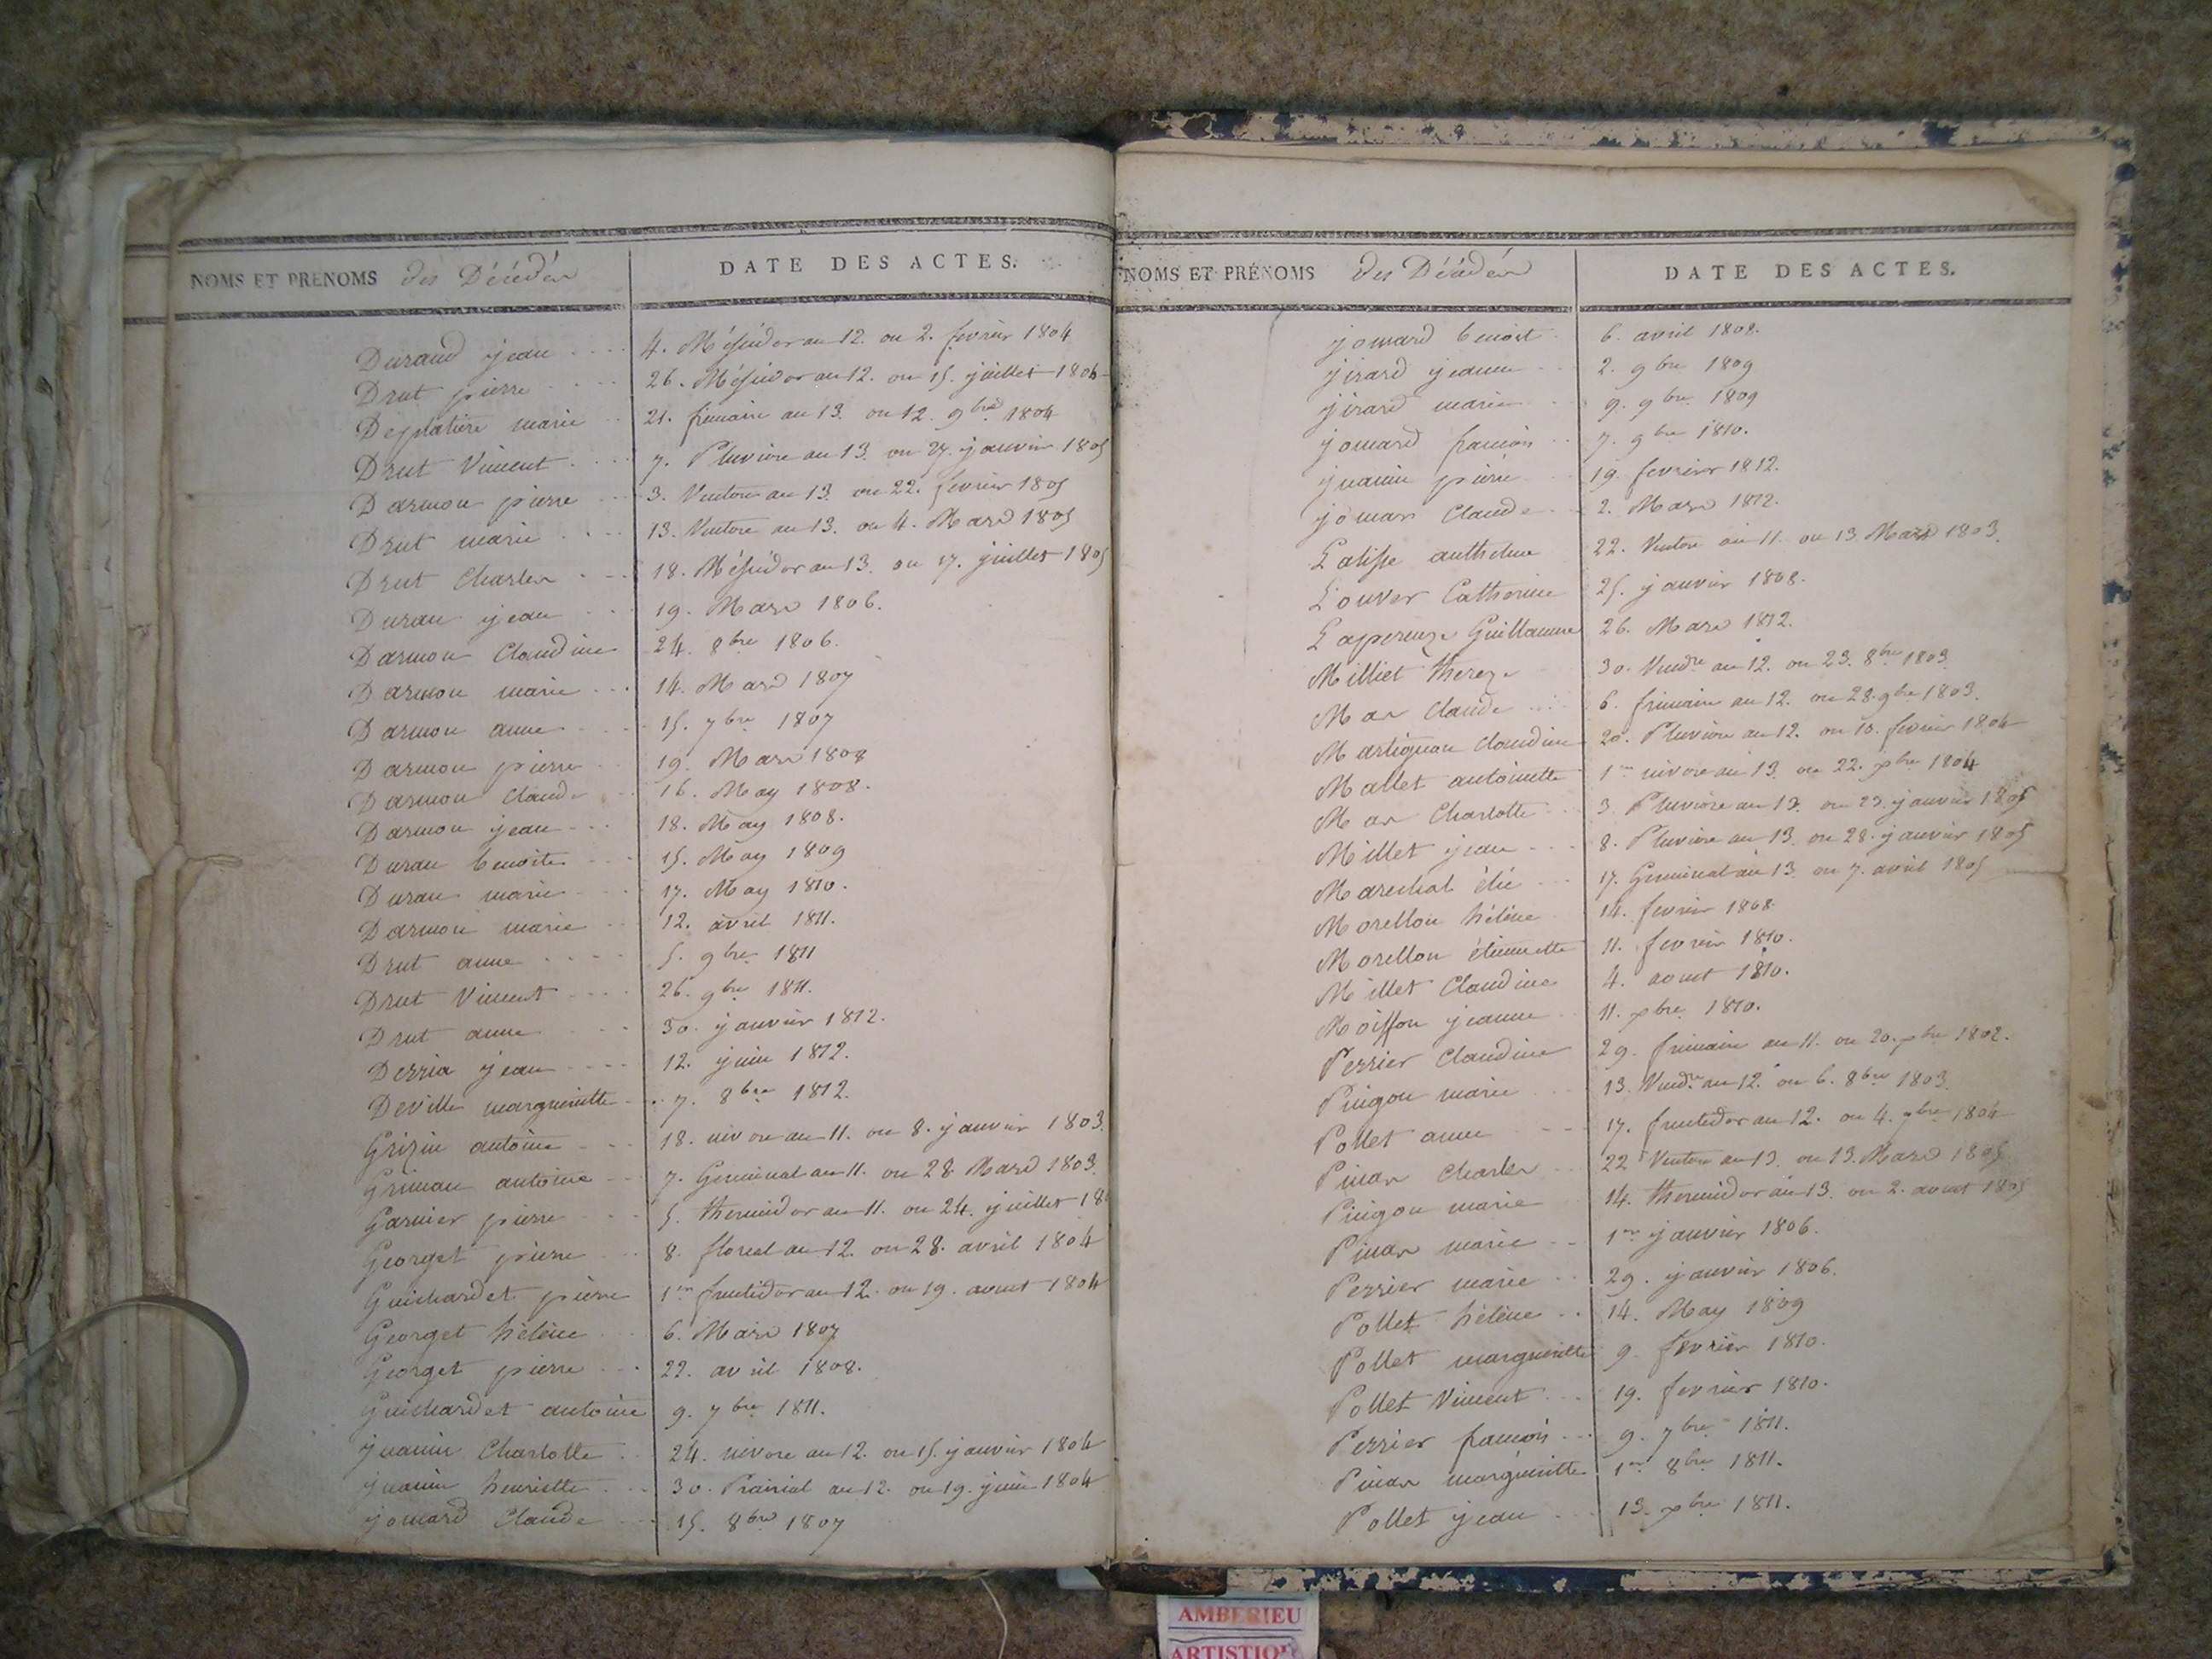 NOMS ET PRENOMS des Décédés DATE DES ACTES.
Durand jean 4. Méssidor an 12. ou 2. fevrier 1804
Drut pierre 26. Méssidor an 12. ou 15. juillet 1804
Deplatière marie 21. frimaire an 13. ou 12. 9bre 1804
Drut Vincent 7. Pluviose an 13. ou 27. janvier 1805
Darmon pierre 3. Ventose an 13. ou 22. fevrier 1805
Drut marie 13. Ventose an 13. ou 4. Mars 1805
Drut Charles 18. Méssidor an 13. ou 7. juillet 1805
Duran jean 19. Mars 1806.
Darmon Claudine 24. 8bre 1806.
Darmon marie 14. Mars 1807
Darmon anne 15. 7bre 1807
Darmon pierre 19. Mars 1808
Darmon Claude 16. May 1808.
Darmon jean 18. May 1808.
Duran benoite 15. May 1809
Duran marie 17. May 1810.
Darmon marie 12. avril 1811.
Drut anne 5. 9bre 1811
Drut Vincent 26. 9bre 1811.
Drut anne 30. janvier 1812.
Derria jean 12. juin 1812.
Deville margueritte 7. 8bre 1812.
Grizin antoine 18. nivose an 11. ou 8. janvier 1803.
Griman antoine 7. Germinal an 11. ou 28 Mars 1803.
Garnier pierre 5. thermidor an 11. ou 24. juillet 18
Georget pierre 8. floreal an 12. ou 28. avril 1804
Guichardet pierre 1er fructidor an 12. ou 19. aoust 1804
Georget hélène 6. Mars 1807
Georget pierre 22. avril 1808.
Guichardet antoine 9. 7bre 1811.
juanin Charlotte 24. nivose an 12. ou 15. janvier 1804
juanin henriette 30. Prairial an 12. ou 19. juin 1804
jomard Claude 15. 8bre 1807
NOMS ET PRÉNOMS des Décédés DATE DES ACTES.
jomard benoit 6. avril 1808.
jirard jeanne 2. 9bre 1809
jirard marie 9. 9bre 1809
jomard francois 7. 9bre 1810.
juanin pierre 19. fevrier 1812.
jomar Claude 2. Mars 1812.
Lalisse anthelme 22. Ventose an 11. ou 13 Mars 1803.
Louver Catherine 25. janvier 1808.
Laperouze Guillaume 26. Mars 1812.
Milliet thereze 30. Vendre an 12. ou 23. 8bre 1803
Mas Claude 6. frimaire an 12. ou 28. 9bre 1803.
Martignan Claudine 20. Pluviose an 12. ou 10. fevrier 1804
Mallet antoinette 1er nivose an 13. ou 22. xbre 1804
Mas Charlotte 3. Pluviose an 13. ou 23. janvier 1805
Millet jean 8. Pluviose an 13. ou 28. janvier 1805
Marechal élie 17. Germinal an 13. ou 7. avril 1805
Morellon hélène 14. fevrier 1808.
Morellon étiennette 11. fevrier 1810.
Millet Claudine 4. aoust 1810.
Moisson jeanne 11. xbre 1810.
Perrier Claudine 29. frimaire an 11. ou 20. xbre 1802.
Pingon marie 13. Vendre an 12. ou 6. 8bre 1803.
Pollet anne 17. fructidor an 12. ou 4. 7bre 1804
Pinas Charles 22 Ventose an 13. ou 13. Mars 1805.
Pingon marie 14. thermidor an 13. ou 2. aoust 1805
Pinas marie 1er janvier 1806.
Perrier marie 29. janvier 1806.
Pollet hélène 14. May 1809
Pollet margueritte 9. fevrier 1810.
Pollet Vincent 19. fevrier 1810.
Perrier francois 9. 7bre 1811.
Pinas margueritte 1er 8bre 1811.
Pollet jean 13. xbre 1811.
AMBERIEU
ARTISTIQ